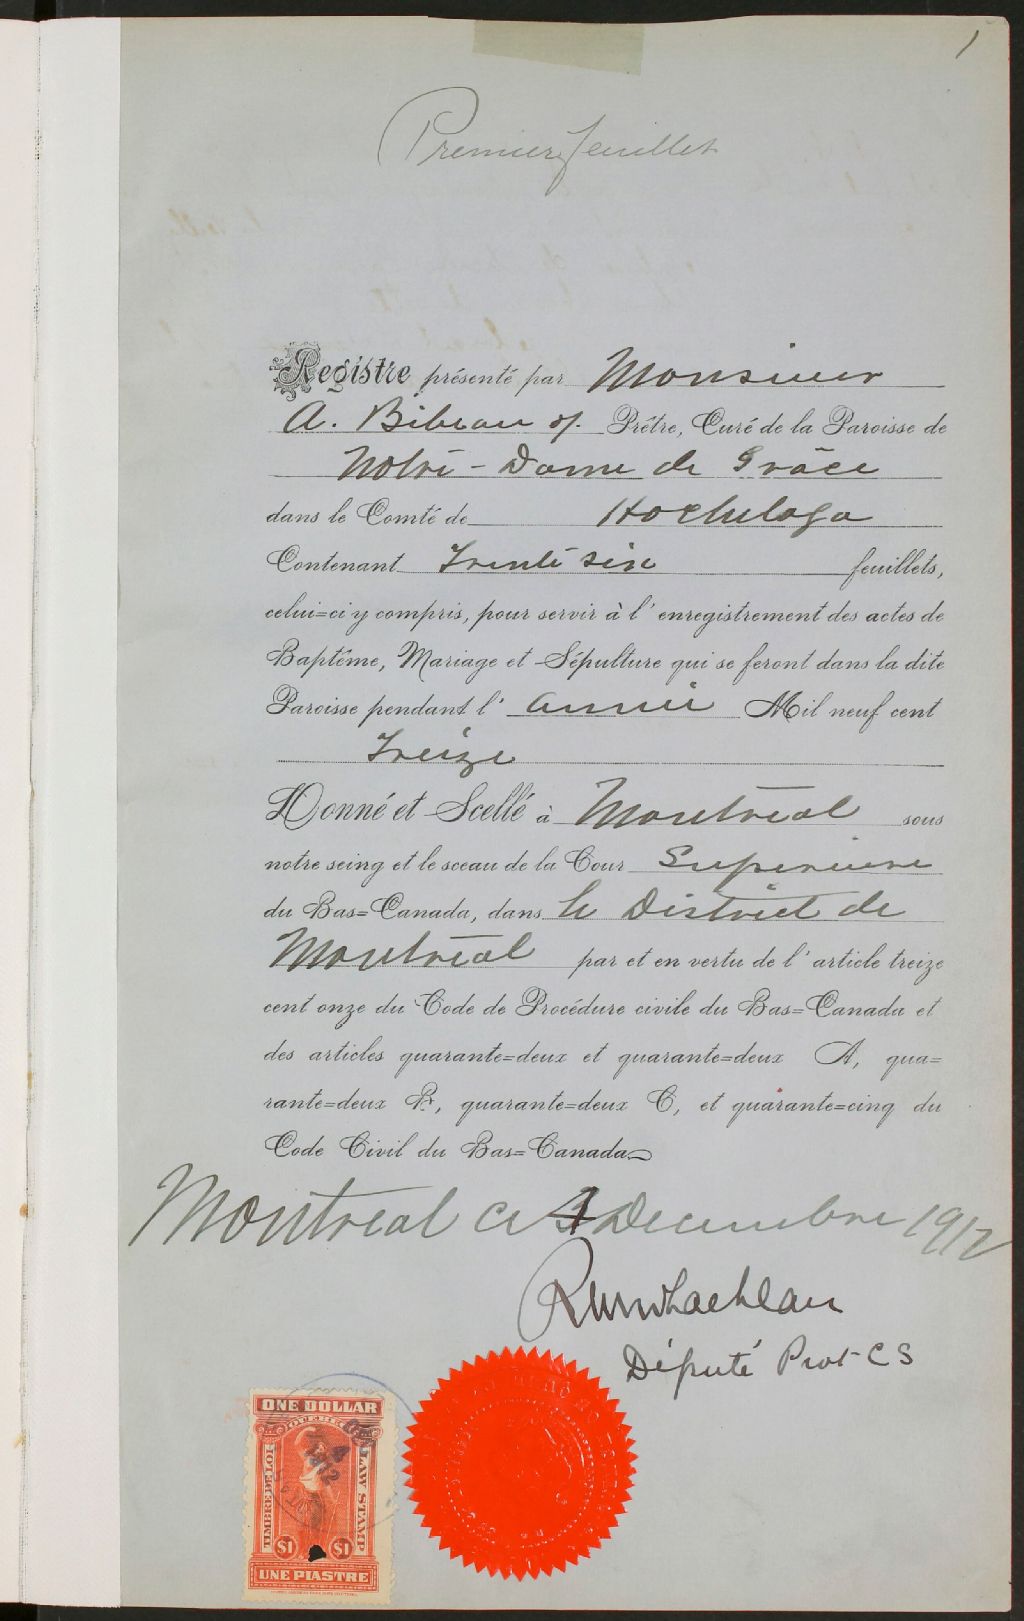 1
Premier feuillet
Registre présenté par Monsieur
A. Bibeau Prêtre, Curé de la Paroisse de
Notre-Dame de Grâce
dans le Comté de Hochelaga
Contenant Trente six feuillets,
celui=ci y compris, pour servir à l'enregistrement des actes de
Baptême, Mariage et Sépulture qui se feront dans la dite
Paroisse pendant l' année Mil neuf cent
Treize
Donné et Scellé à Montréal sous
notre seing et le sceau de la Cour Superieure
du Bas=Canada, dans le District de
Montréal par et en vertu de l'article treize
cent onze du Code de Procédure civile du Bas=Canada et
des articles quarante=deux et quarante=deux A, qua=
rante=deux B, quarante=deux C, et quarante=cinq du
Code Civil du Bas=Canada
Montréal ce 4 Decembre 1912
Député Prot CS
ONE DOLLAR
QUEBEC
TIMBRE DE LOI
LAW STAMP
1912
$1 $1
UNE PIASTRE